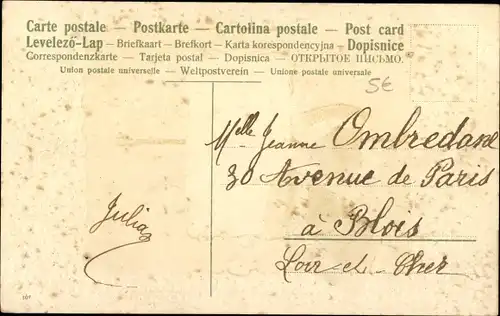 Carte postale — Postkarte — Cartolina postale — Post card
Levelező-Lap — Briefkaart — Brefkort — Karta korespondencyjna — Dopisnice
Correspondenzkarte — Tarjeta postal — Dopisnica — ОТКРЫТОЕ ПИСЬМО.
Union postale universelle — Weltpostverein — Unione postale universale
5€
Melle Jeanne Ombredane
30 Avenue de Paris
à Blois
Loir-et-Cher
Julia
107